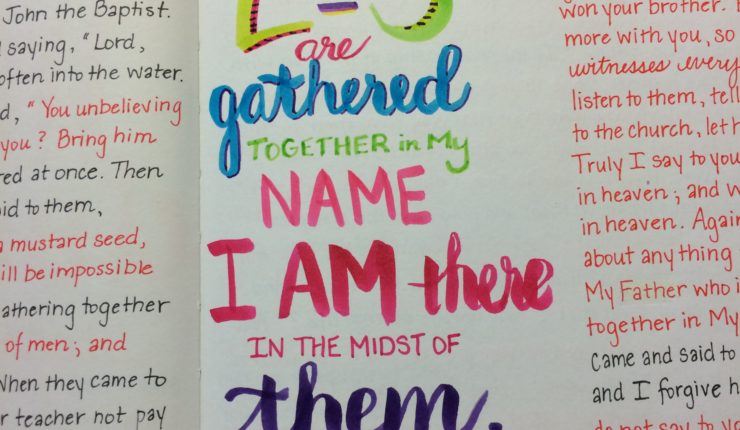 John the Baptist.
saying, "Lord,
often into the water.
d, "You unbelieving
you? Bring him
red at once. Then
id to them,
a mustard seed,
ill be impossible
athering together
of men; and
When they came to
r teacher not pay
are
gathered
TOGETHER in My
NAME
I AM there
IN THE MIDST OF
them.
won your brother.
more with you, so
witnesses every
listen to them, tell
to the church, let h
Truly I say to you
in heaven; and w
in heaven. Again
about anything
My Father who i
together in My
Came and said to
and I forgive h
do not say to yo